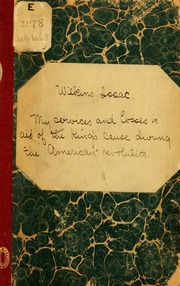 E
278
Wilkins Isaac
My services and losses in
aid of the King's cause during
the American revolution.